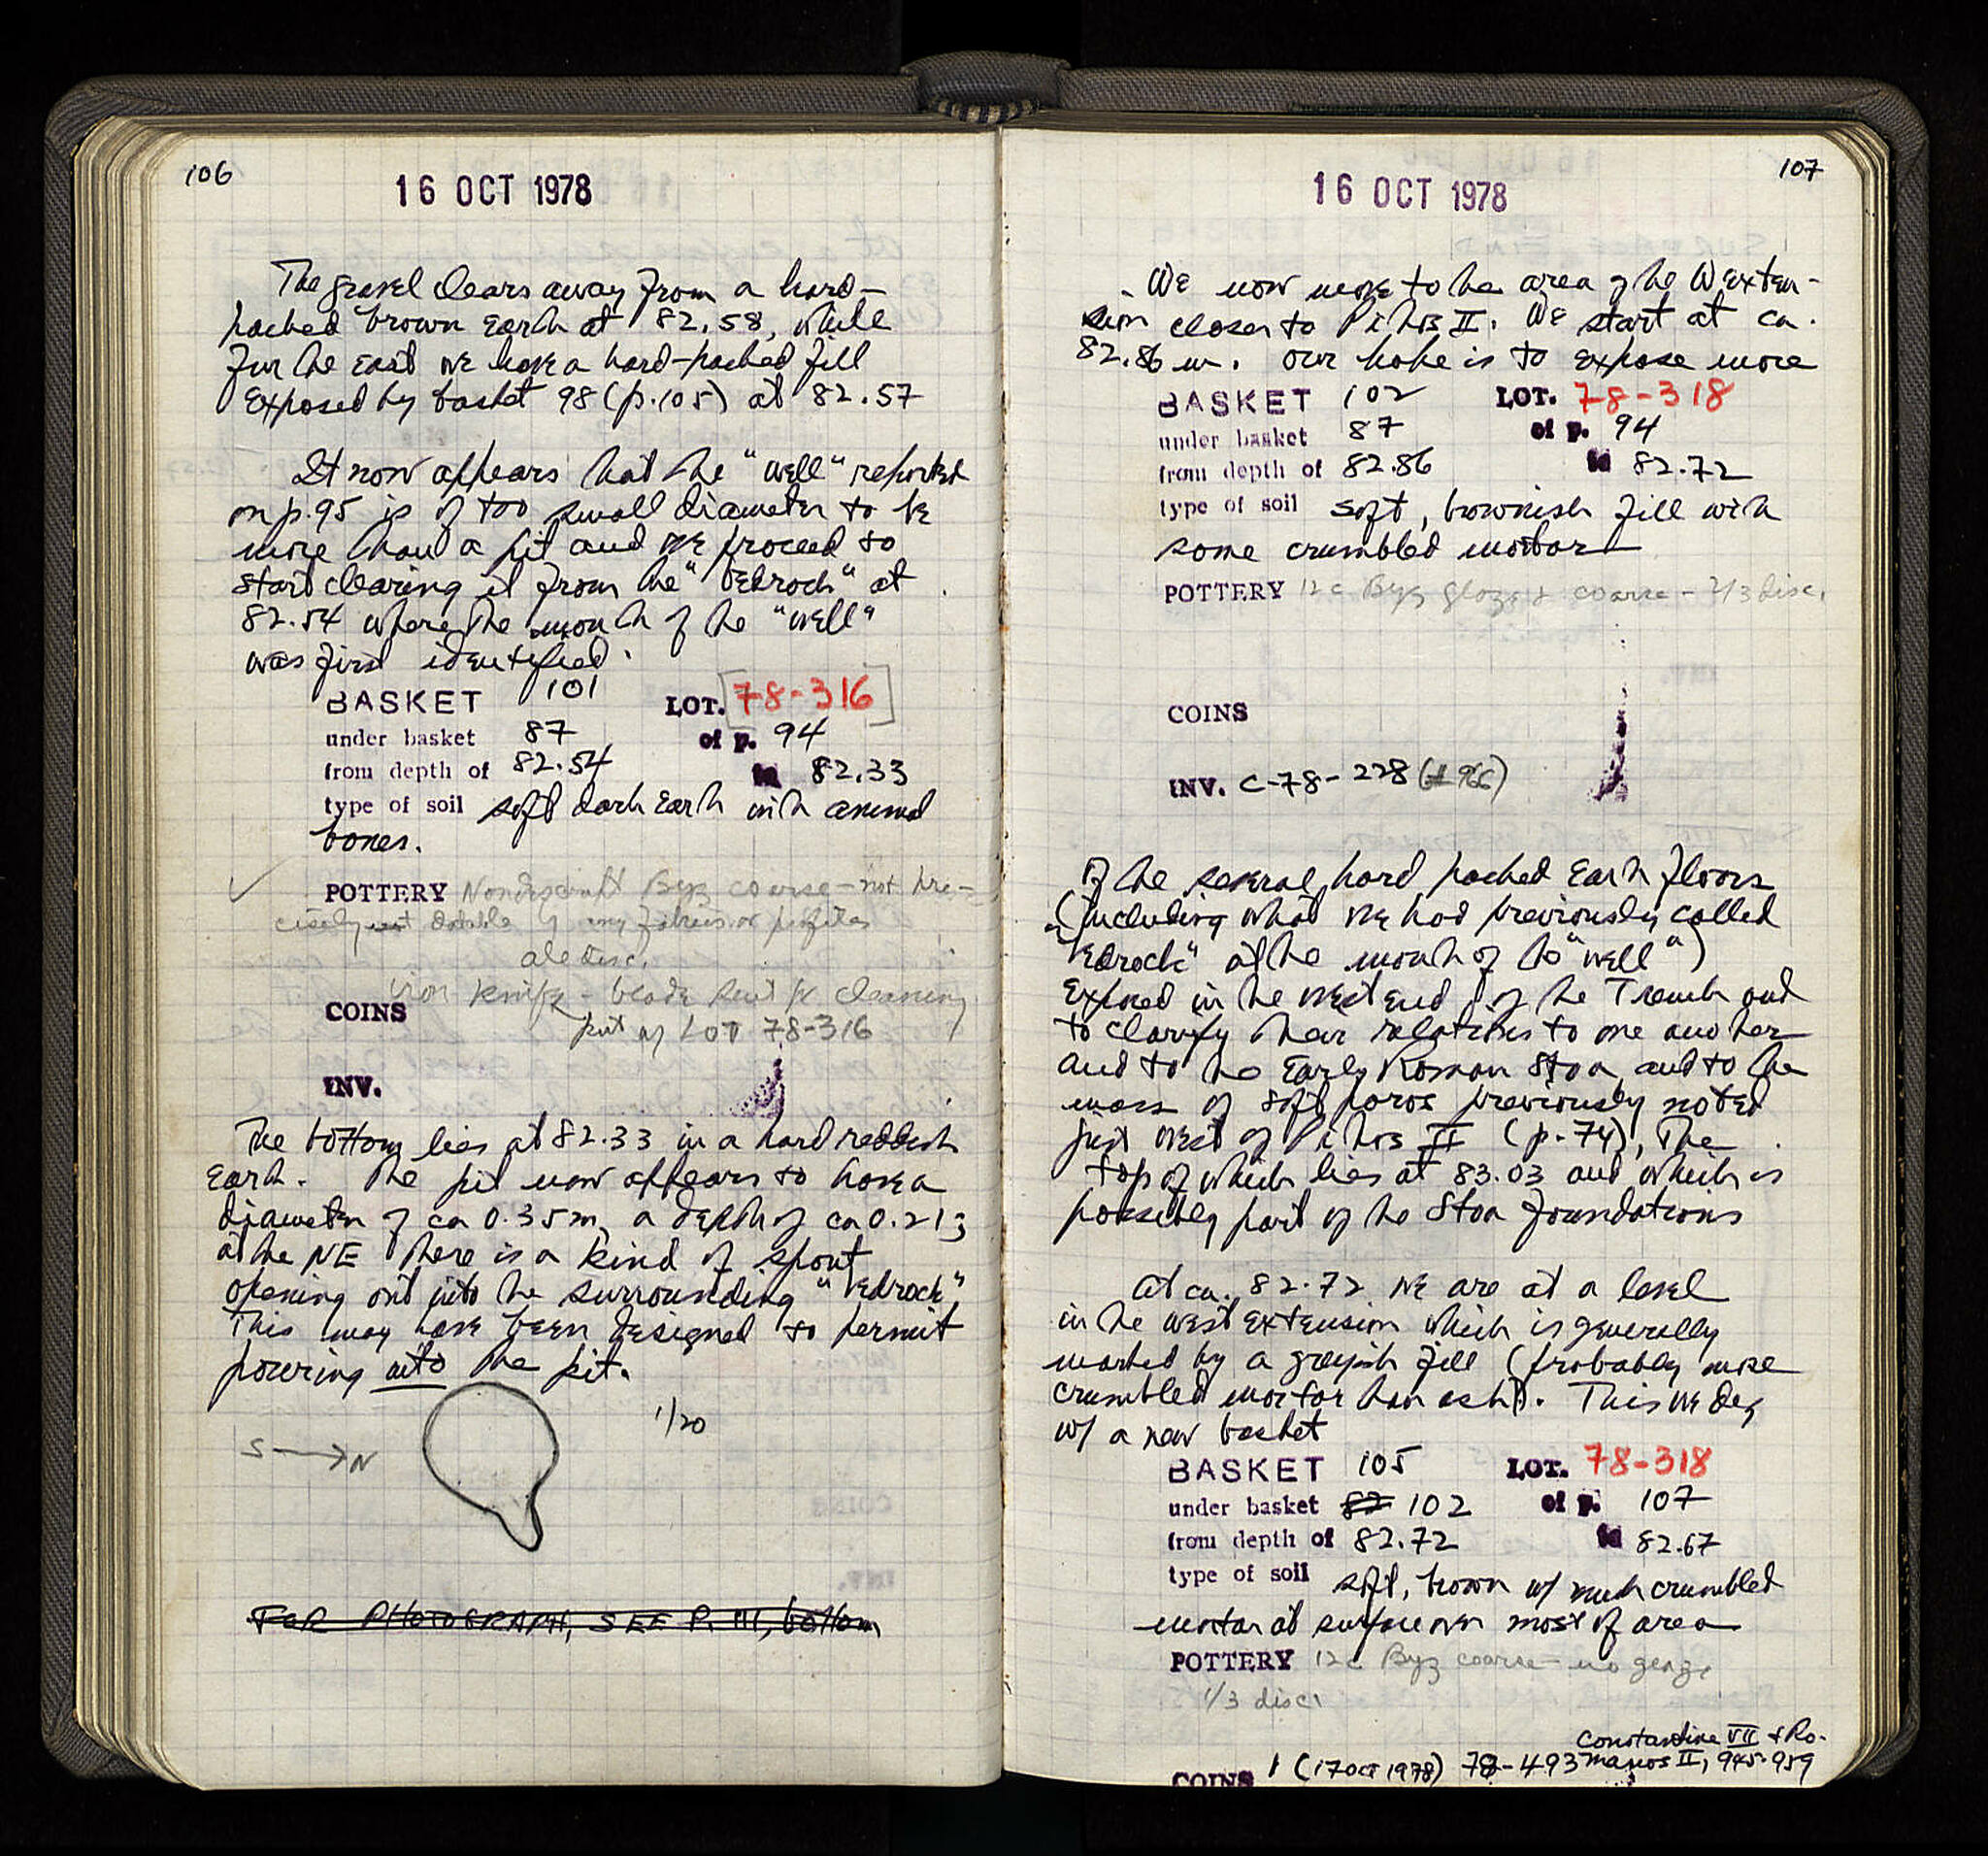 106
16 OCT 1978
The gravel clears away from a hard-
packed brown earth at 82.58, while
further east we have a hard-packed fill
exposed by basket 98 (p.105) at 82.57
It now appears that the "well" reported
on p.95 is of too small diameter to be
more than a pit and we proceed to
start clearing it from the "bedrock" at
82.54 where the mouth of the "well"
was first identified.
BASKET 101 LOT. 78-316
under basket 87 of p. 94
from depth of 82.54 to 82.33
type of soil soft dark earth with animal
bones.
✓ POTTERY Nondescript Byz coarse - not pre-
cisely datable by any fabrics or profiles
all disc.
iron knife - blade sent for cleaning
COINS
put w/ LOT 78-316
INV.
The bottom lies at 82.33 in a hard reddish
earth. The pit now appears to have a
diameter of ca 0.35m, a depth of ca 0.21;
at the NE there is a kind of spout
opening out into the surrounding "bedrock"
This may have been designed to permit
pouring into the pit.
1/20
S → N
FOR PHOTOGRAPH, SEE P. 111, bottom
107
16 OCT 1978
We now move to the area of the W exten-
sion closer to Pithos II. We start at ca.
82.86 m. Our hope is to expose more
BASKET 102 LOT. 78-318
under basket 87 of p. 94
from depth of 82.86 to 82.72
type of soil soft, brownish fill with
some crumbled mortar
POTTERY 12c Byz glazed & coarse - 2/3 disc.
COINS
INV. C-78-228 (966)
of the several hard packed earth floors
(including what we had previously called
"bedrock" at the mouth of the "well")
exposed in the west end of the Trench and
to clarify their relations to one another
and to the Early Roman Stoa, and to the
mass of soft poros previously noted
just west of Pithos II (p.74), the
top of which lies at 83.03 and which is
possibly part of the Stoa foundations
At ca. 82.72 we are at a level
in the west extension which is generally
marked by a grayish fill (probably more
crumbled mortar than ash). This we dig
w/ a new basket
BASKET 105 LOT. 78-318
under basket 87 102 of p. 107
from depth of 82.72 to 82.67
type of soil soft, brown w/ much crumbled
mortar at surface over most of area
POTTERY 12c Byz coarse - no glaze
1/3 disc.
Constantine VII & Ro-
COINS 1 (17 OCT 1978) 78-493 manos II, 945-959